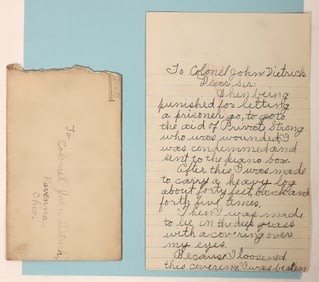 To
Colonel John Dietrich,
Ravenna
Ohio.
To Colonel John Dietrick
Dear Sir:
Then being
punished for letting
a prisoner go, to go to
the aid of Private Strong
who was wounded I
was condemned and
sent to the piano box.
After this I was made
to carry a heavy log
about forty feet back and
forth five times.
Then I was made
to lie in the deep grass
with a covering over
my eyes.
Because I loosened
this covering I was beaten